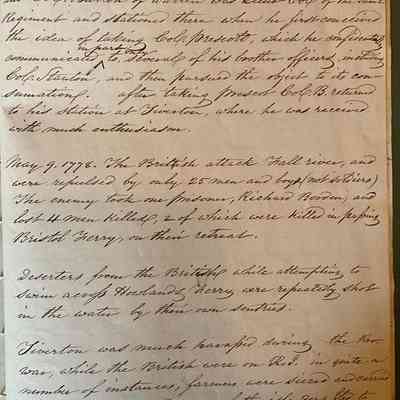 Regiment and stationed there when he first conceived
the idea of taking Col. Prescott, which he confidentially
communicated in part only to several of his brother officers, including
Col. Stanton, and then pursued the object to its con-
sumation. after taking prescot Col. B. returned
to his station at Tiverton, where he was received
with much enthusiasm.
May 9. 1778. The British attack Fall river, and
were repulsed by only 25 men and boys (not soldiers)
The enemy took one prisoner, Richard Borden, and
lost 4 men killed, 2 of which were killed in passing
Bristol Ferry, on their retreat.
Deserters from the British while attempting to
swim across Howlands Ferry were repeatedly shot
in the water by their own sentries.
Tiverton was much harassed during the Rev.
war, while the British were on R.I. in quite a
number of instances, farmers were siezed and carried